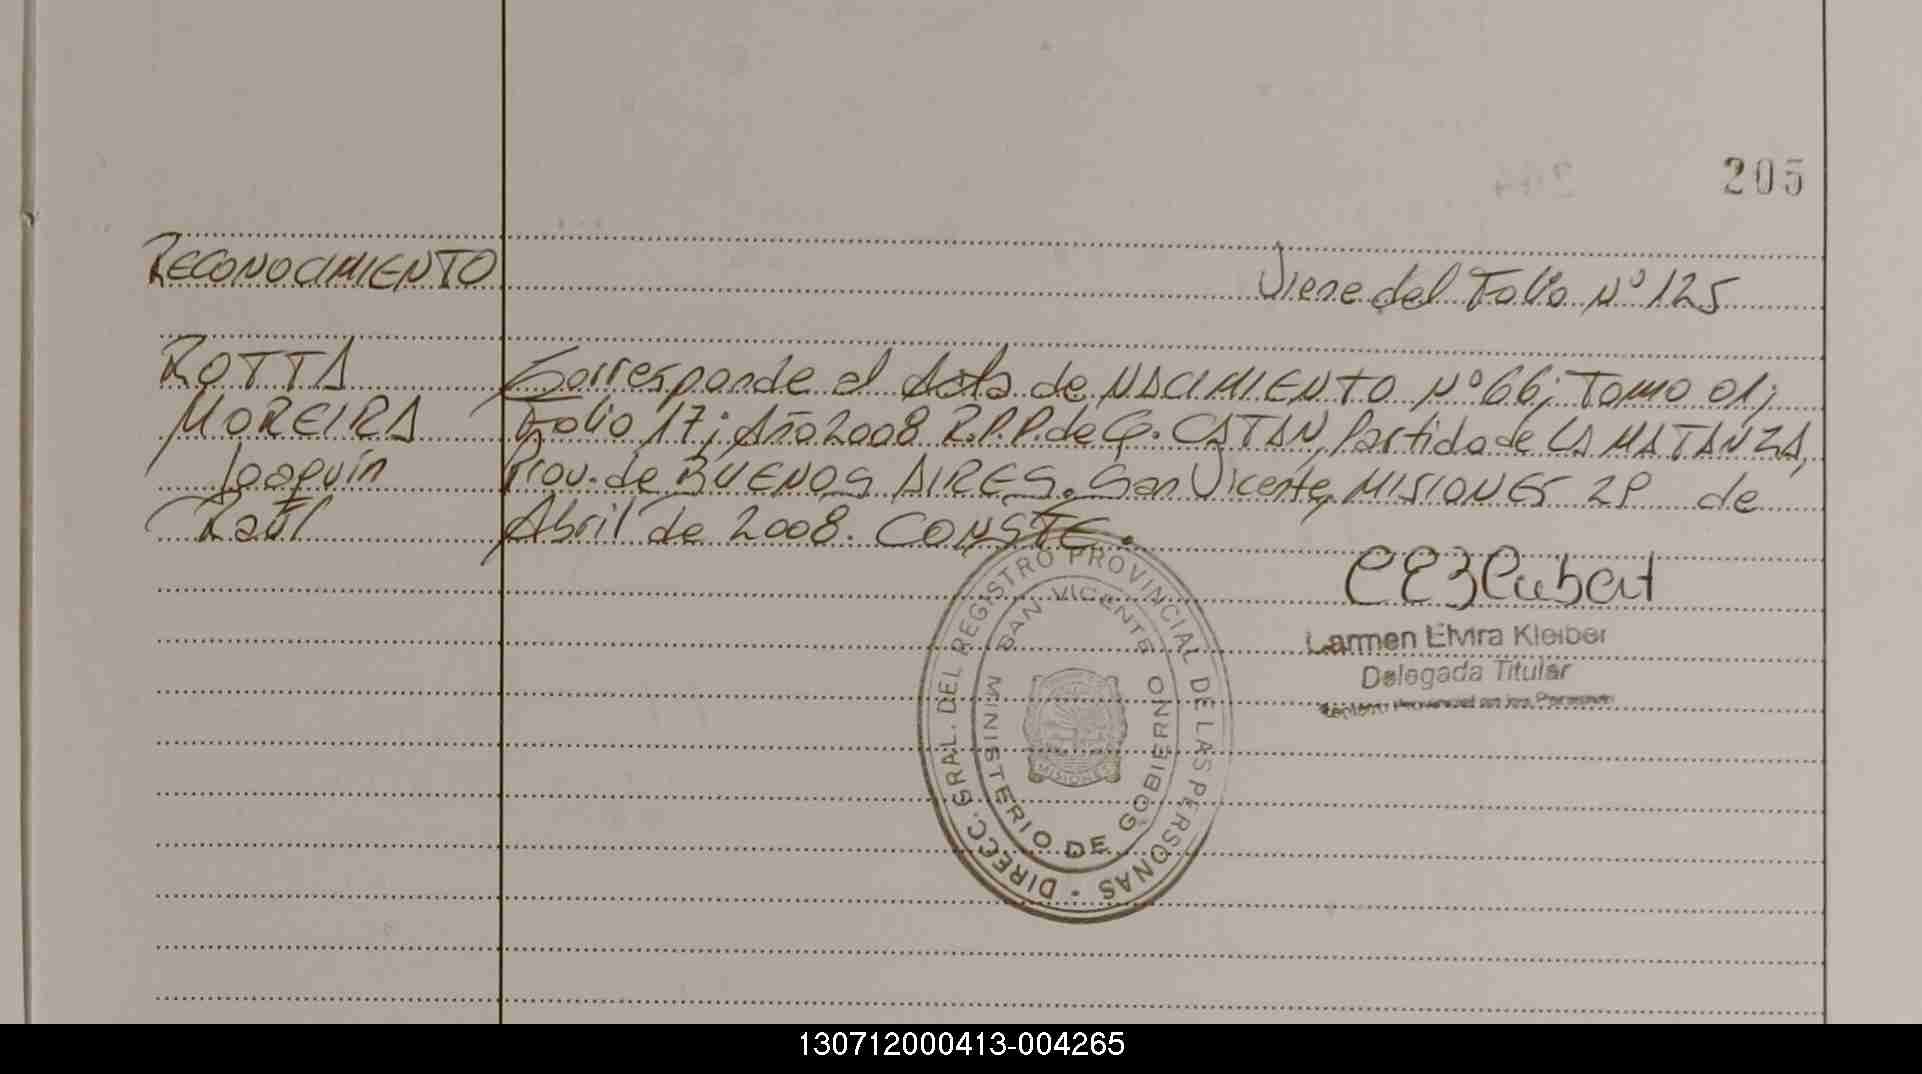 205
RECONOCIMIENTO
Viene del Folio Nº 125
ROTTA
Corresponde al Acta de NACIMIENTO Nº 66; TOMO 01;
MOREIRA
Folio 17; Año 2008 R.P.P. de G. CATAN, Partido de LA MATANZA,
Joaquín
Prov. de BUENOS AIRES. San Vicente, MISIONES 29 de
Raúl
Abril de 2008. CONSTE.
DIRECC. GRAL. DEL REGISTRO PROVINCIAL DE LAS PERSONAS
SAN VICENTE
MINISTERIO DE GOBIERNO
MISIONES
Carmen Elvira Kleiber
Delegada Titular
Registro Provincial de las Personas
130712000413-004265